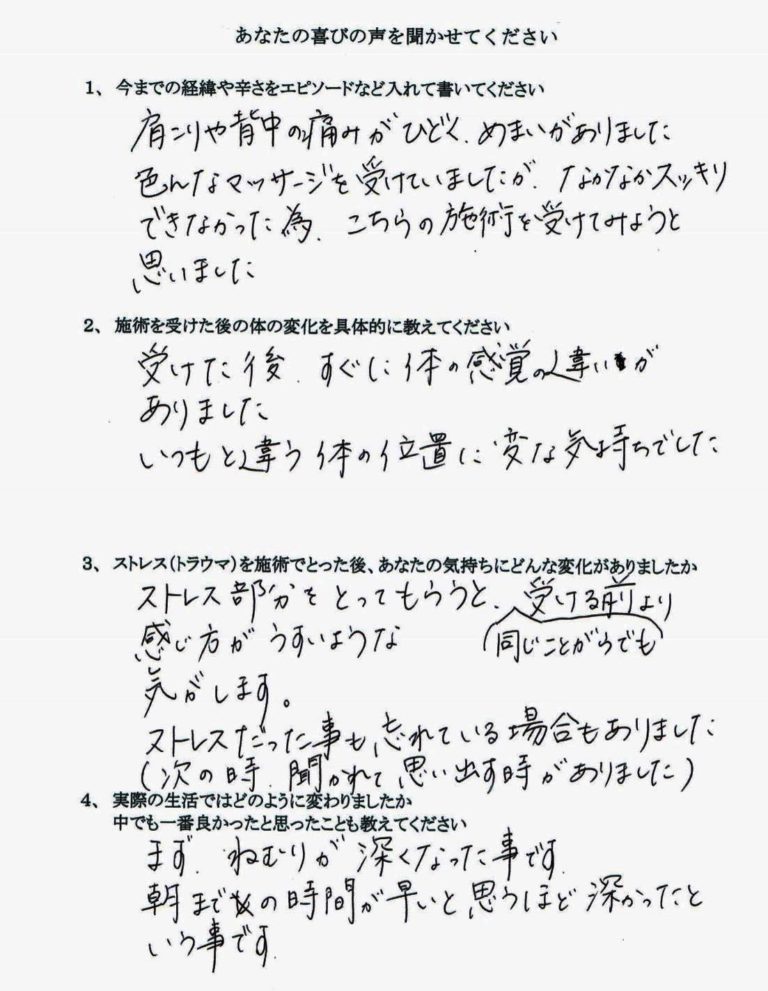 あなたの喜びの声を聞かせてください
1、今までの経緯や辛さをエピソードなど入れて書いてください
肩こりや背中の痛みがひどく、めまいがありました
色んなマッサージを受けていましたが、なかなかスッキリ
できなかった為、こちらの施術を受けてみようと
思いました
2、施術を受けた後の体の変化を具体的に教えてください
受けた後、すぐに体の感覚の違いが
ありました
いつもと違う体の位置に変な気持ちでした
3、ストレス(トラウマ)を施術でとった後、あなたの気持ちにどんな変化がありましたか
ストレス部分をとってもらうと、受ける前より
同じことがらでも
感じ方がうすいような
気がします。
ストレスだった事も忘れている場合もありました
(次の時、聞かれて思い出す時がありました)
4、実際の生活ではどのように変わりましたか
中でも一番良かったと思ったことも教えてください
まず、ねむりが深くなった事です
朝までの時間が早いと思うほど深かったと
いう事です